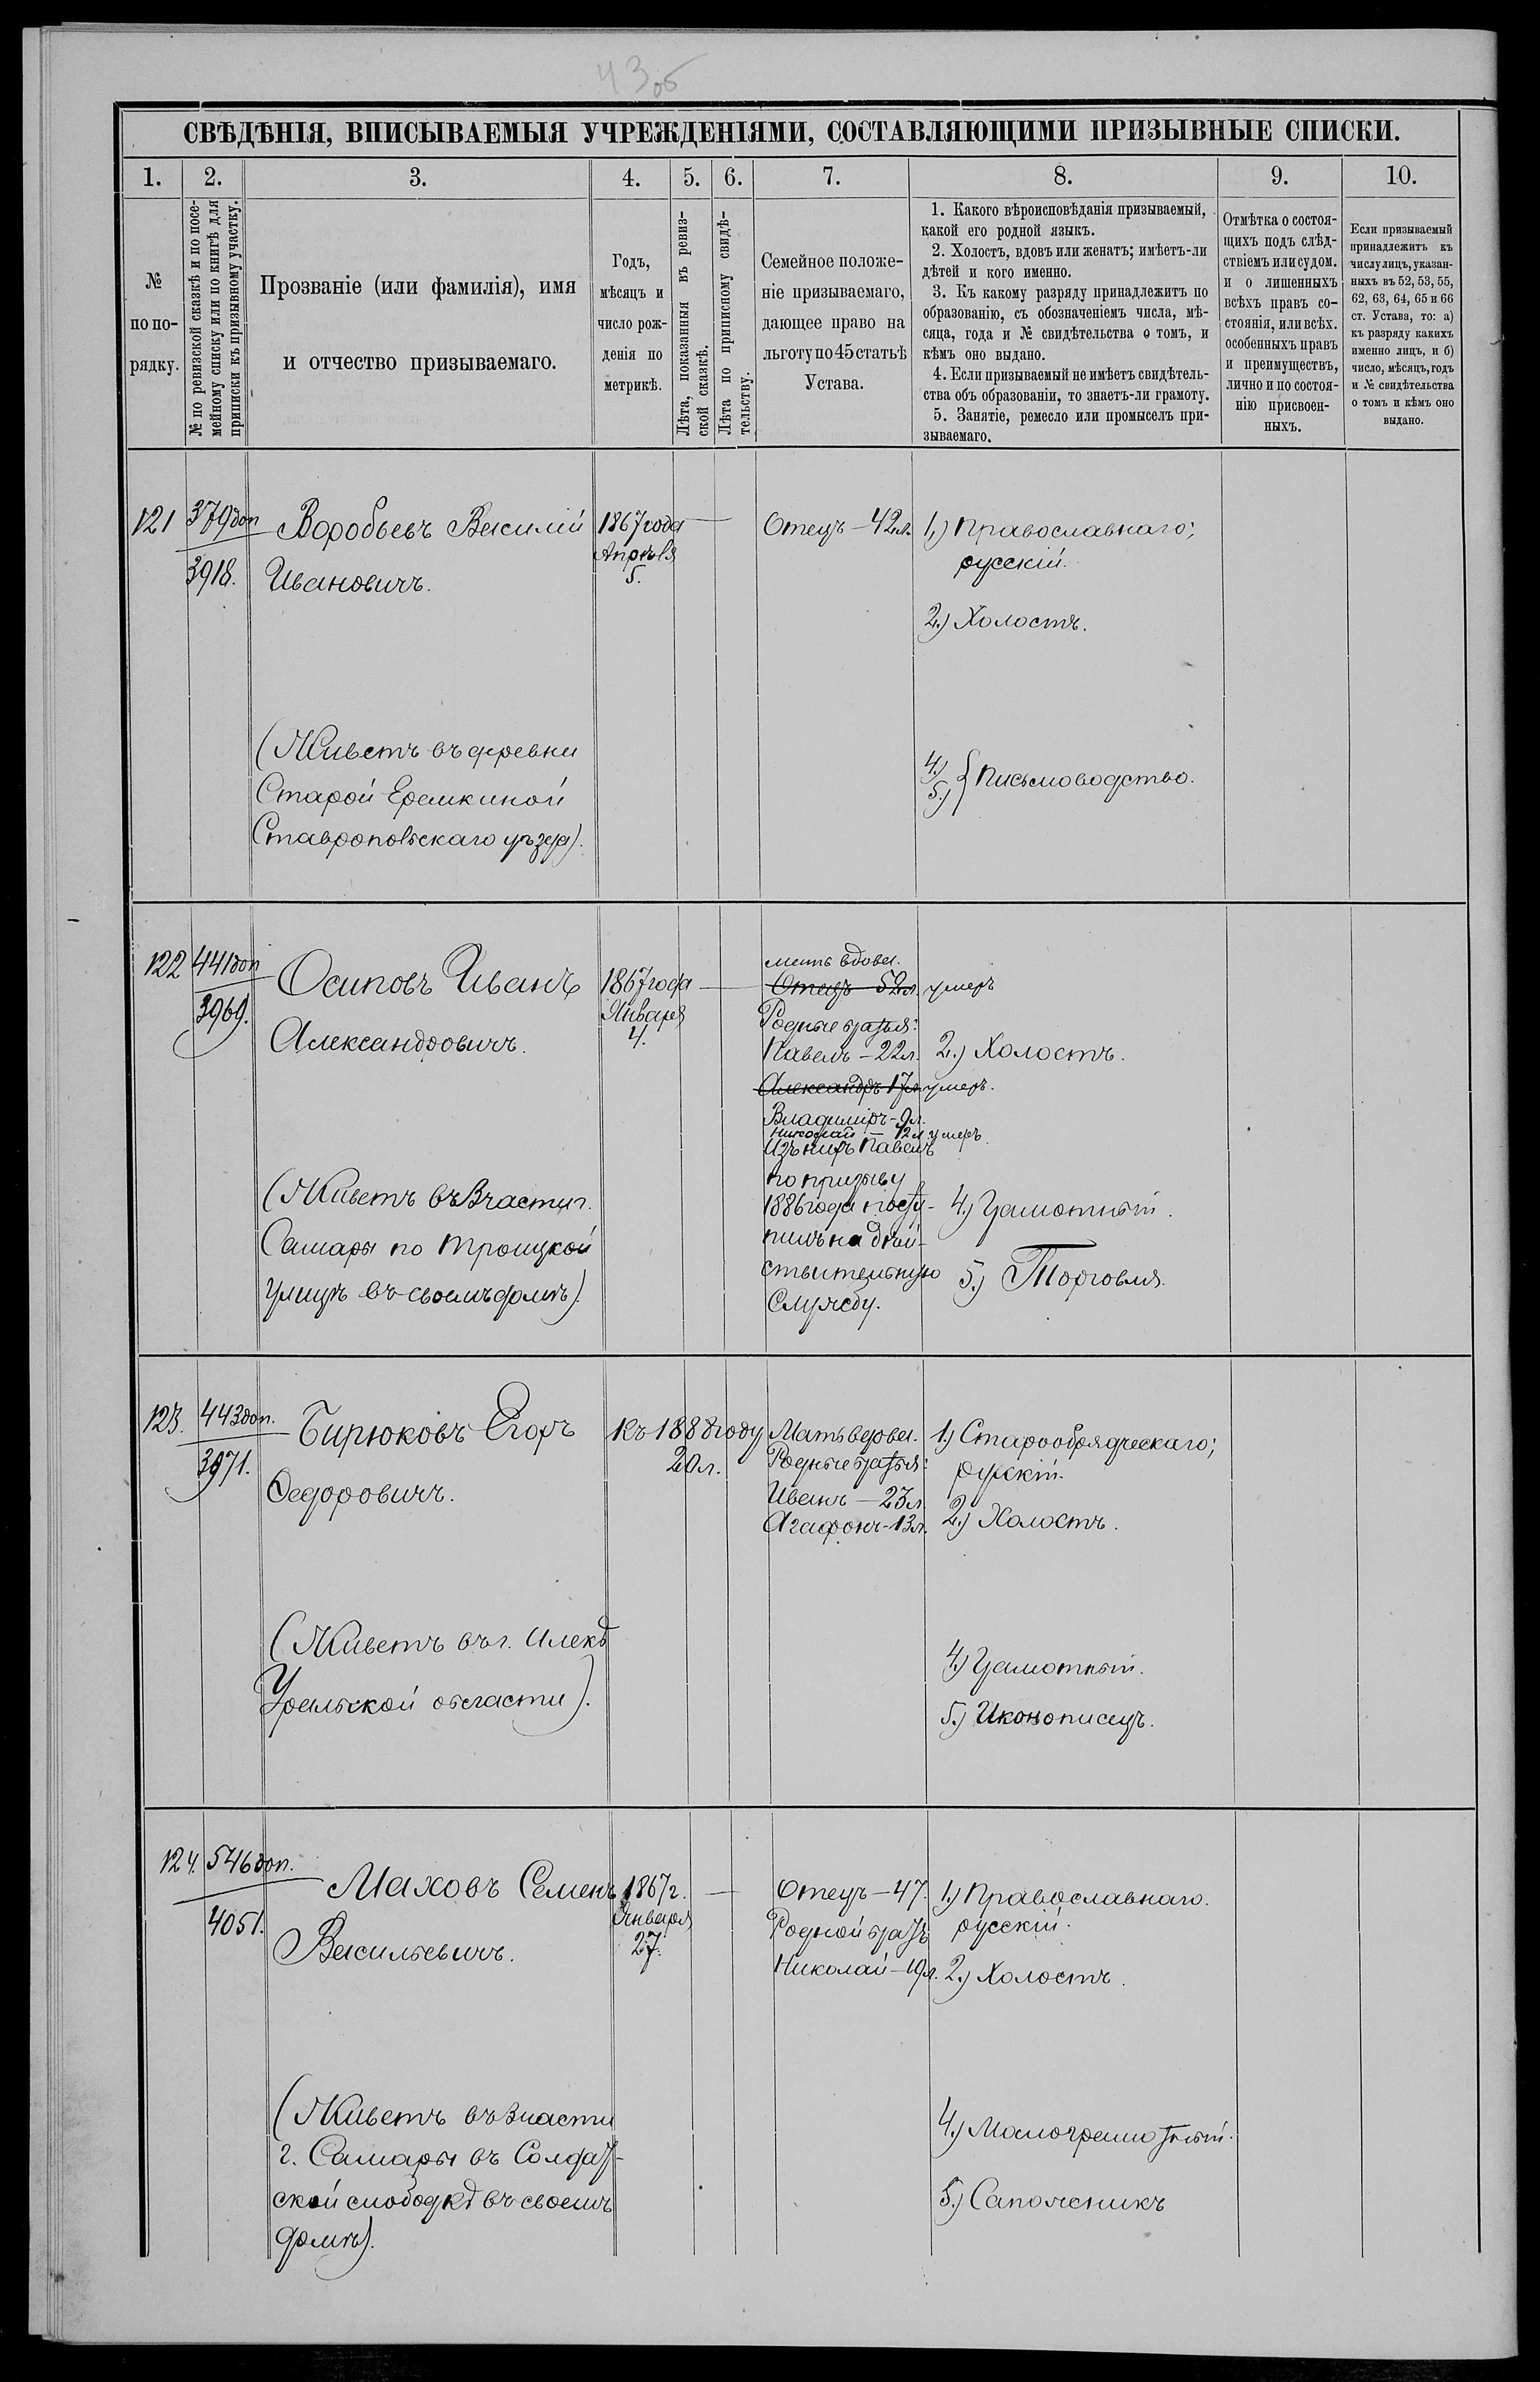 43об
СВѢДѢНІЯ, ВПИСЫВАЕМЫЯ УЧРЕЖДЕНІЯМИ, СОСТАВЛЯЮЩИМИ ПРИЗЫВНЫЕ СПИСКИ.
1. 2. 3. 4. 5. 6. 7. 8. 9. 10.
№
по по-
рядку.
№ по ревизской сказкѣ и по посе-
мейному списку или по книгѣ для
приписки къ призывному участку.
Прозваніе (или фамилія), имя
и отчество призываемаго.
Годъ,
мѣсяцъ и
число рож-
денія по
метрикѣ.
Лѣта, показанныя въ ревиз-
ской сказкѣ.
Лѣта по приписному свидѣ-
тельству.
Семейное положе-
ніе призываемаго,
дающее право на
льготу по 45 статьѣ
Устава.
1. Какого вѣроисповѣданія призываемый,
какой его родной языкъ.
2. Холостъ, вдовъ или женатъ; имѣетъ-ли
дѣтей и кого именно.
3. Къ какому разряду принадлежитъ по
образованію, съ обозначеніемъ числа, мѣ-
сяца, года и № свидѣтельства о томъ, и
кѣмъ оно выдано.
4. Если призываемый не имѣетъ свидѣтель-
ства объ образованіи, то знаетъ-ли грамоту.
5. Занятіе, ремесло или промыселъ при-
зываемаго.
Отмѣтка о состоя-
щихъ подъ слѣд-
ствіемъ или судом.
и о лишенныхъ
всѣхъ правъ со-
стоянія, или всѣх.
особенныхъ правъ
и преимуществъ,
лично и по состоя-
нію присвоен-
ныхъ.
Если призываемый
принадлежитъ къ
числу лицъ, указан-
ныхъ въ 52, 53, 55,
62, 63, 64, 65 и 66
ст. Устава, то: а)
къ разряду какихъ
именно лицъ, и б)
число, мѣсяцъ, годъ
и № свидѣтельства
о томъ и кѣмъ оно
выдано.
121
379 доп
3918.
Воробьевъ Василій
Ивановичъ.
(Живетъ въ деревни
Старой Еремкиной
Ставропольскаго уѣзда).
1867 года
Апрѣля
5.
—
Отецъ — 42 л.
1.) Православнаго;
русскій.
2.) Холостъ.
4.)
5.) } Письмоводство.
122
441 доп
3969.
Осиповъ Иванъ
Александровичъ.
(Живетъ въ 3 части г.
Самары по Троицкой
улицѣ въ своемъ домѣ).
1867 года
Января
4.
—
мать вдова.
Отецъ 52 л. умеръ
Родные братья:
Павелъ — 22 л.
Александръ 17 л умеръ.
Владиміръ - 9 л.
Николай — 12 л умеръ.
Изъ нихъ Павелъ
по призыву
1886 года посту-
пилъ на дѣй-
ствительную
службу.
2.) Холостъ.
4.) Грамотный.
5.) Торговля.
123.
443 доп.
3971.
Бирюковъ Егоръ
Федоровичъ.
(Живетъ въ г. Илекѣ
Уральской области).
Къ 1888 году
20 л.
Мать вдова.
Родные братья:
Иванъ — 23 л
Агафонъ - 13 л.
1.) Старообрядческаго;
русскій.
2.) Холостъ.
4.) Грамотный.
5.) Иконописецъ.
124.
546 доп.
4051.
Маховъ Семенъ
Васильевичъ.
(Живетъ въ 3 части
г. Самары въ Солдат-
ской слободкѣ въ своемъ
домѣ).
1867 г.
Января
27.
—
Отецъ — 47.
Родной братъ
Николай — 19 л.
1.) Православнаго.
русскій.
2.) Холостъ.
4.) Малограмотный.
5.) Сапожникъ